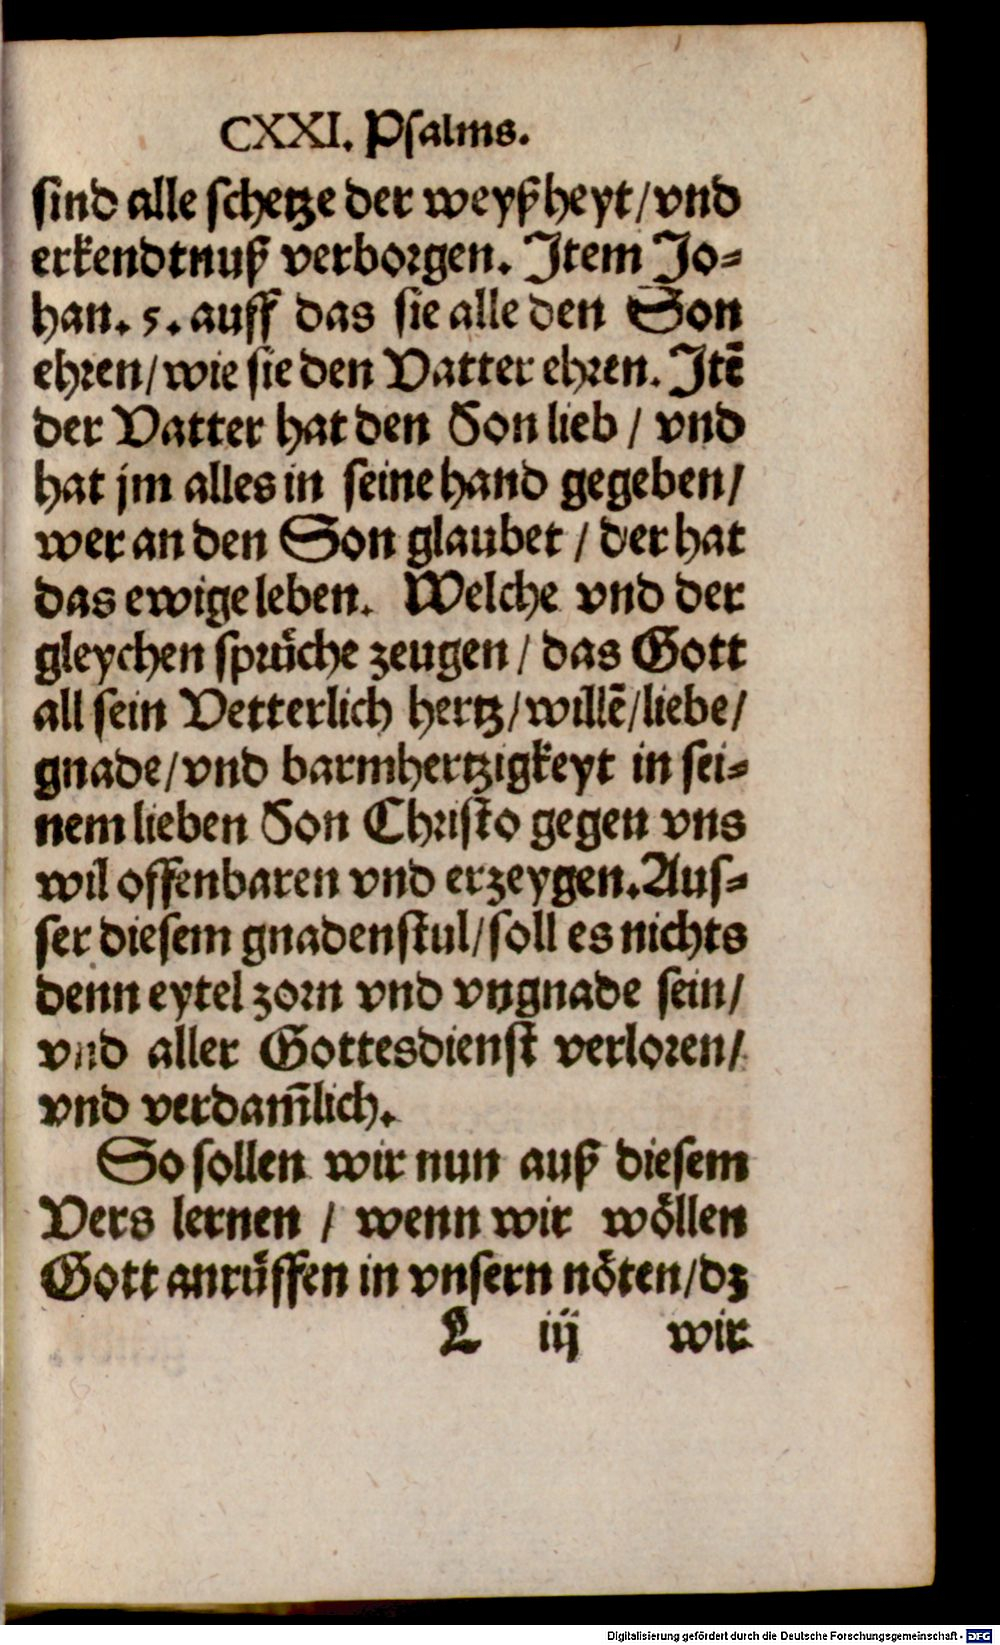 CXXI. Psalms.
sind alle schetze der weyßheyt/vnd
erkendtnuß verborgen. Item Jo-
han. 5. auff das sie alle den Son
ehren/wie sie den Vatter ehren. Itē
der Vatter hat den Son lieb / vnd
hat jm alles in seine hand gegeben/
wer an den Son glaubet / der hat
das ewige leben. Welche vnd der
gleychen sprüche zeugen / das Gott
all sein Vetterlich hertz/willē/liebe/
gnade/vnd barmhertzigkeyt in sei-
nem lieben Son Christo gegen vns
wil offenbaren vnd erzeygen. Aus-
ser diesem gnadenstul/soll es nichts
denn eytel zorn vnd vngnade sein/
vnd aller Gottesdienst verloren/
vnd verdam̄lich.
So sollen wir nun auß diesem
Vers lernen / wenn wir wöllen
Gott anrüffen in vnsern nöten/dz
L iij wir
Digitalisierung gefördert durch die Deutsche Forschungsgemeinschaft - DFG